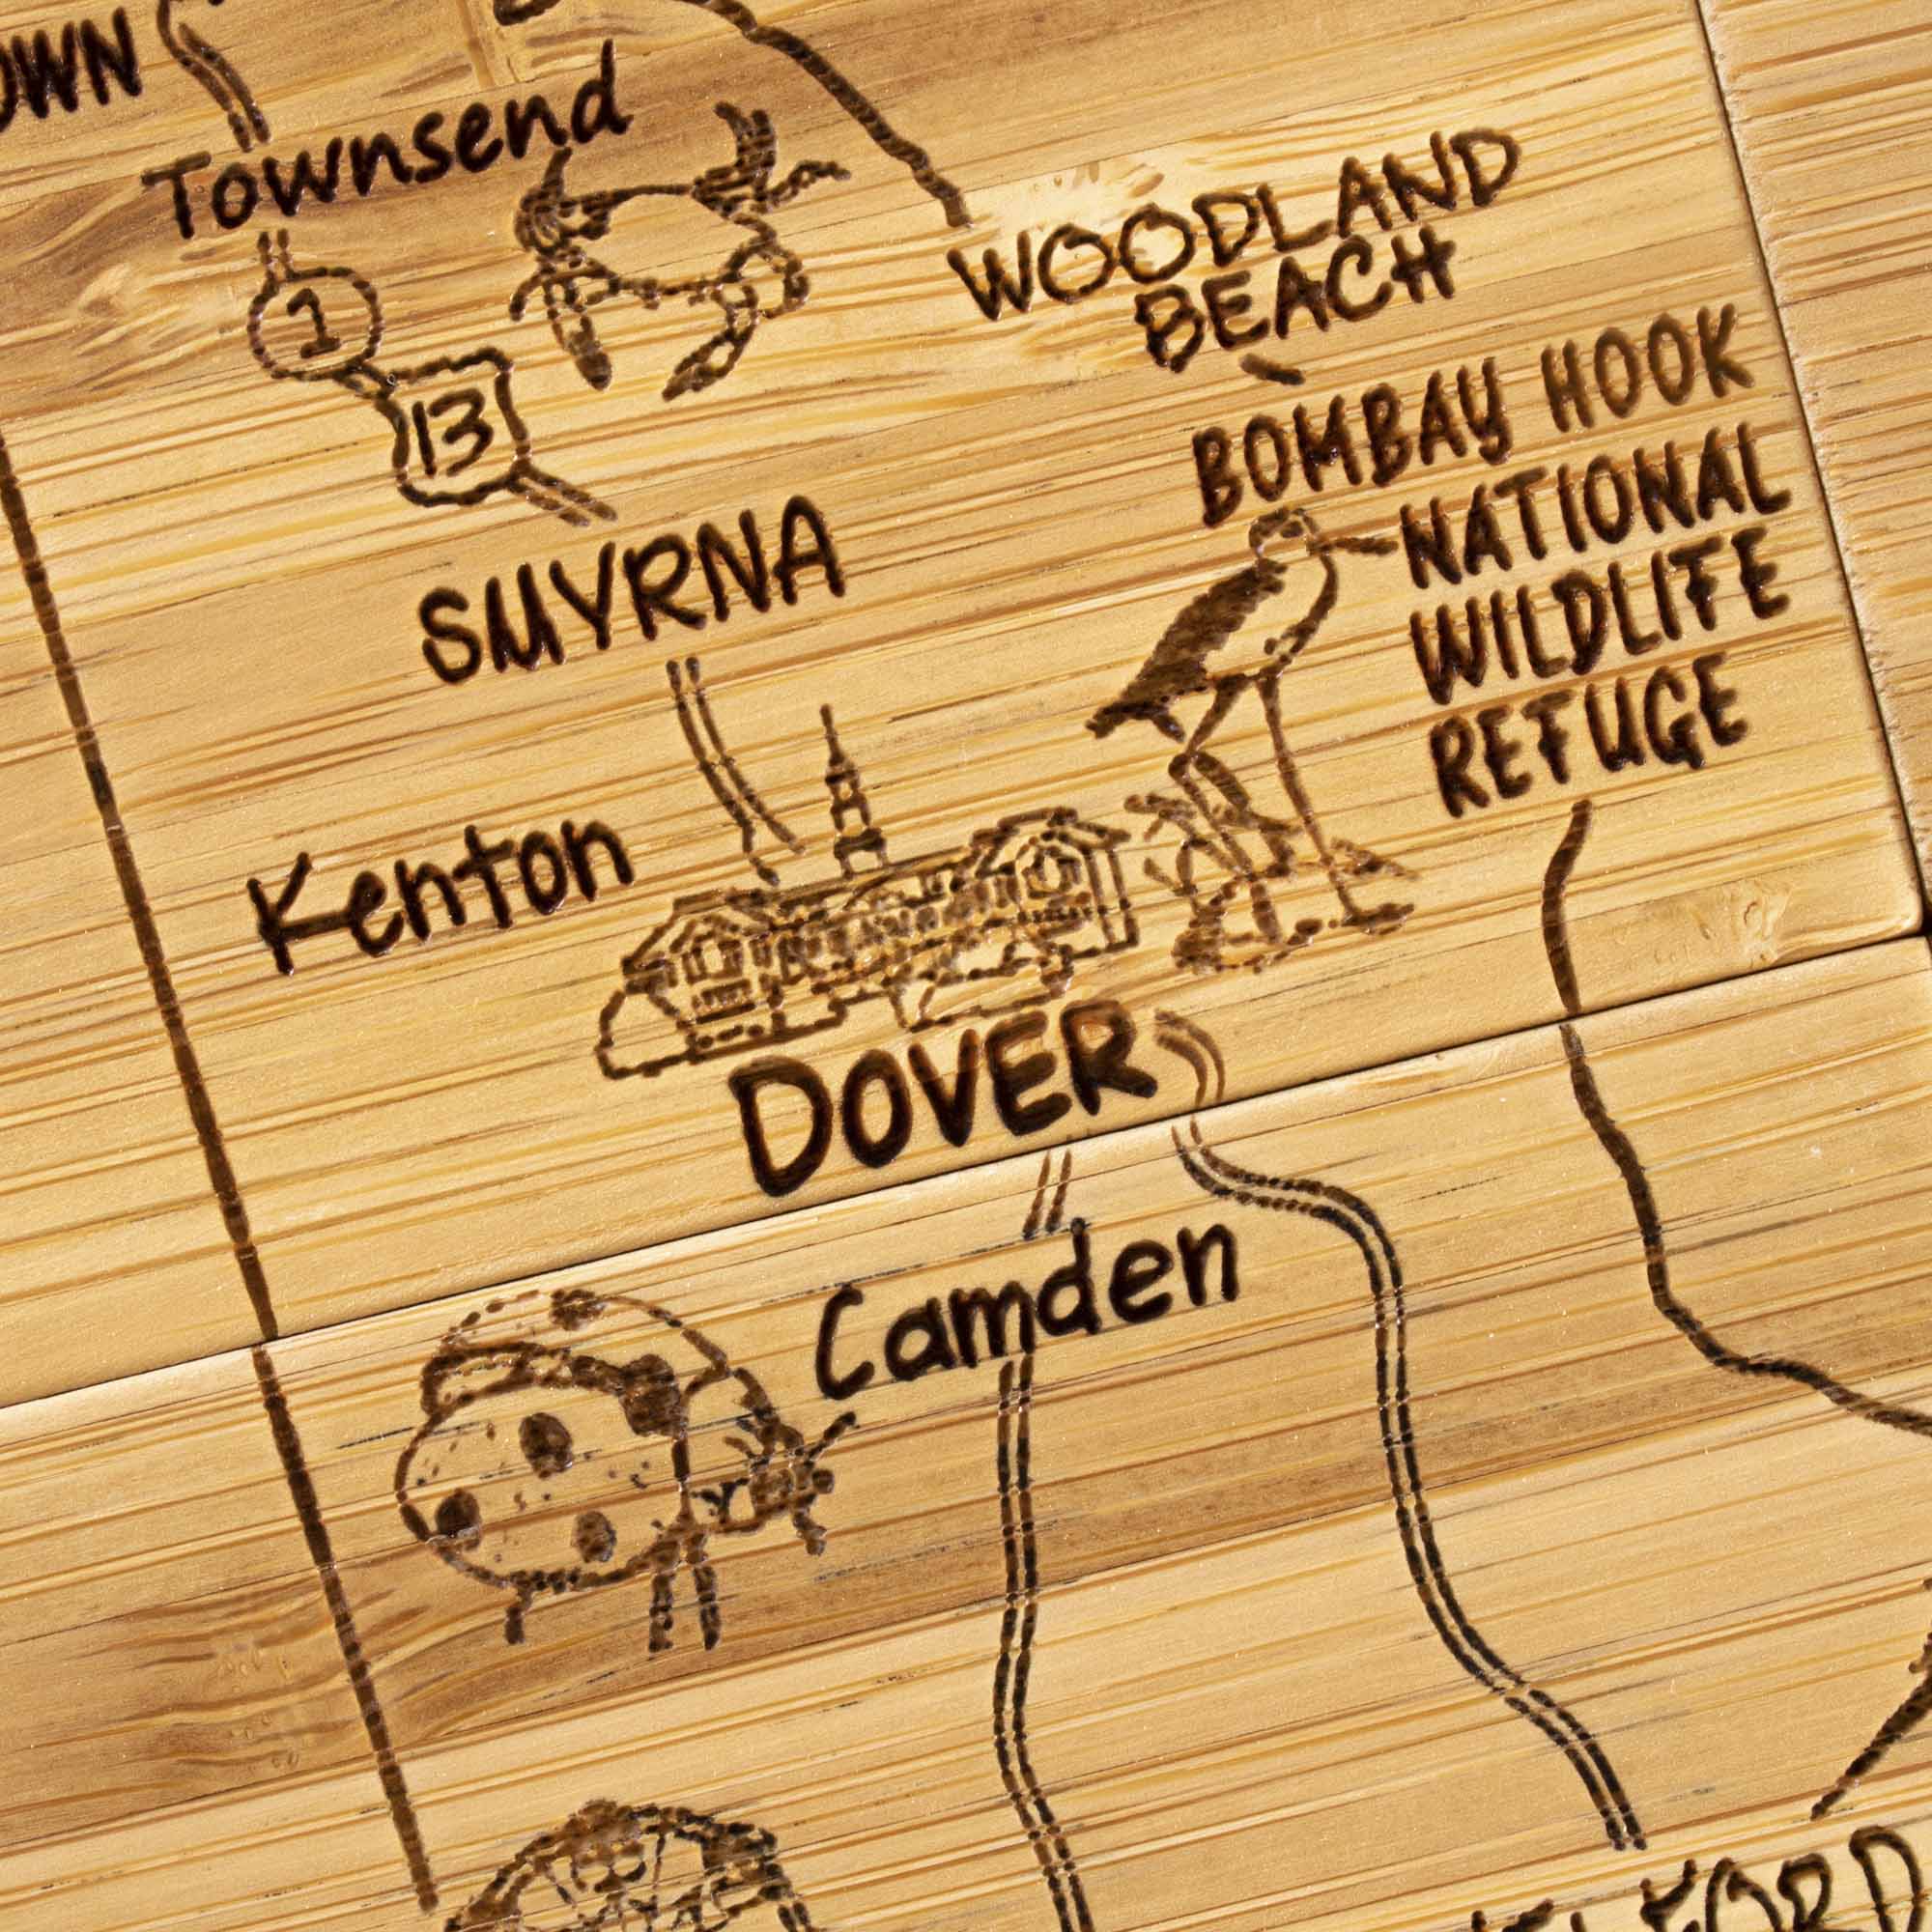 OWN
Townsend
1
13
WOODLAND
BEACH
BOMBAY HOOK
NATIONAL
WILDLIFE
REFUGE
SMYRNA
Kenton
DOVER
Camden